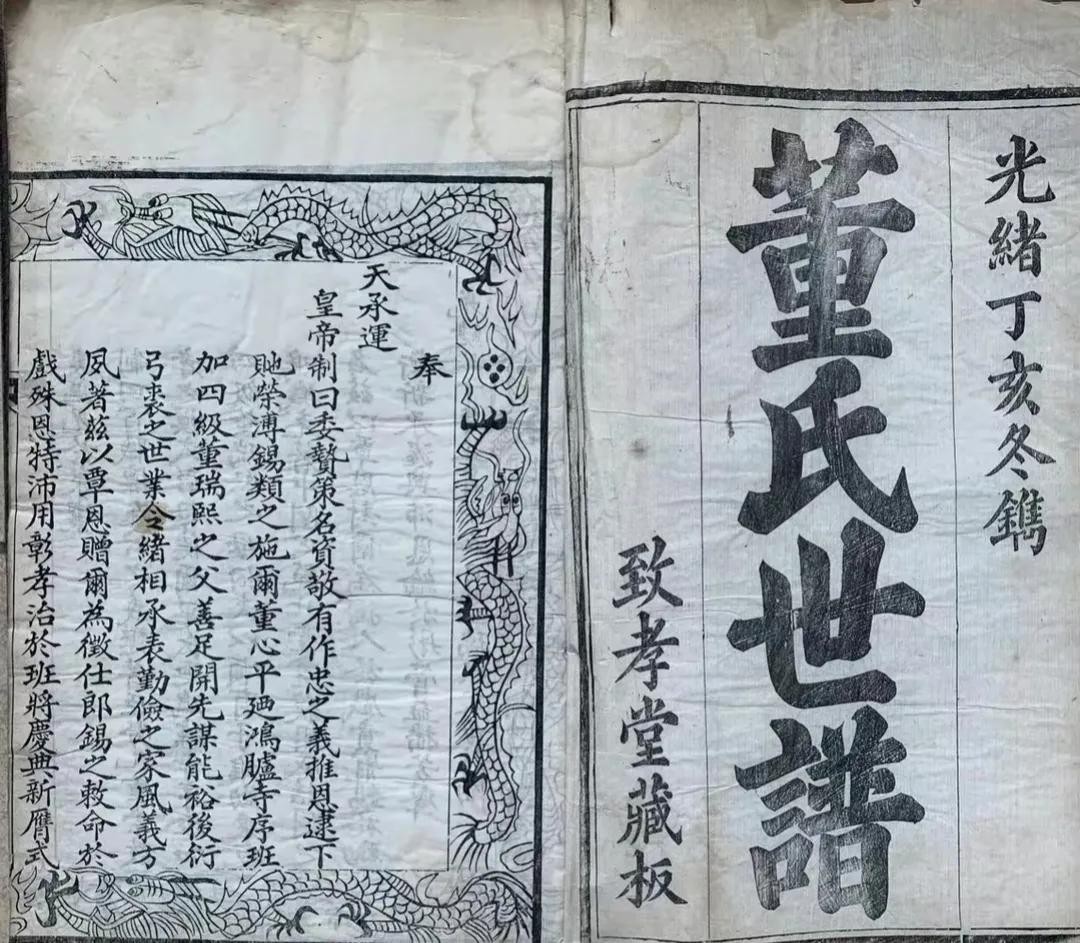 光緒丁亥冬鐫
董氏世譜
致孝堂藏板
奉
天承運
皇帝制曰委贄策名資敬有作忠之義推恩逮下
貤榮溥錫類之施爾董心平廼鴻臚寺序班
加四級董瑞熙之父善足開先謀能裕後衍
弓裘之世業令緒相承表勤儉之家風義方
夙著玆以覃恩贈爾為徵仕郎錫之敕命於
戲殊恩特沛用彰孝治於班將慶典新膺式